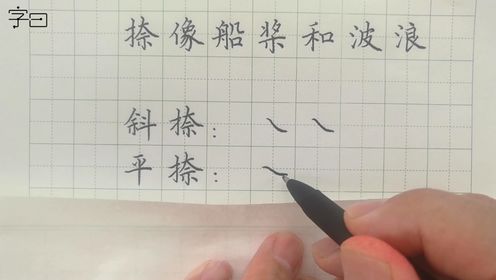 字曰
捺像船桨和波浪
斜捺：㇏㇏
平捺：㇏